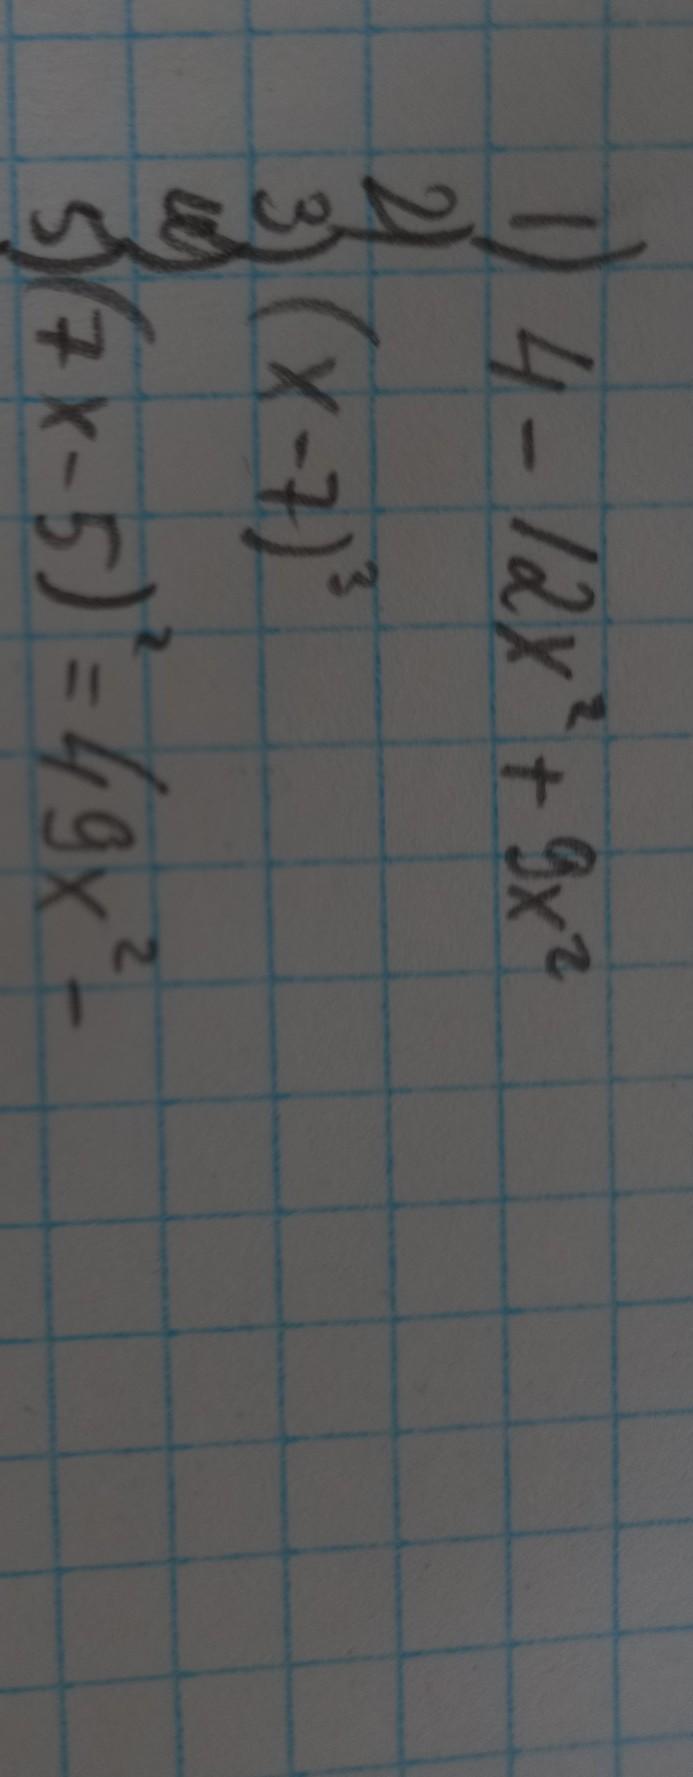 1) 4 - 12x² + 9x²
2)
3) (x - 7)³
5) (7x - 5)² = 49x² -